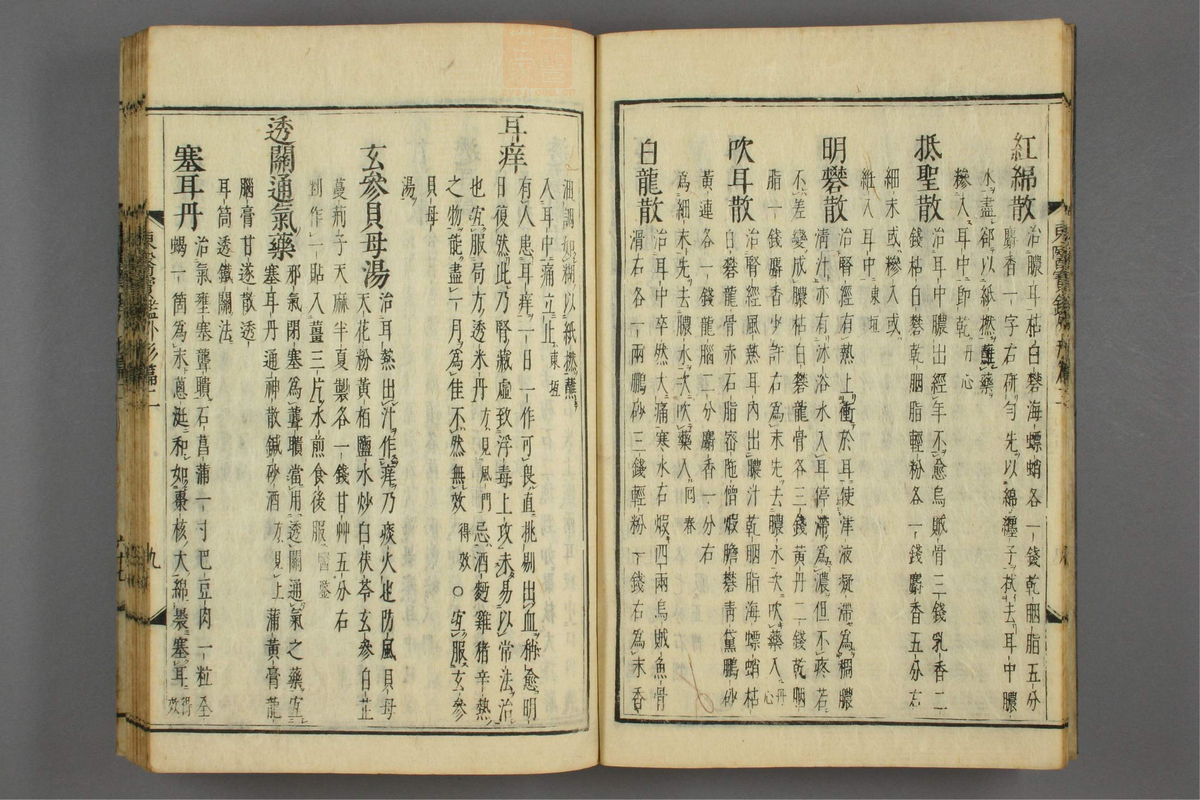 紅綿散 治膿耳枯白礬海螵蛸各一錢乾胭脂五分
麝香一字右研勻先以綿纏子拭去耳中膿
水盡却以紙撚蘸藥
糝入耳中卽乾 丹心
抵聖散 治耳中膿出經年不愈烏賊骨三錢乳香二
錢枯白礬乾胭脂輕粉各一錢麝香五分右
細末或糝入或
紝入耳中 東垣
明礬散 治腎經有熱上衝於耳使津液凝滯爲稠膿
淸汁亦有沐浴水入耳停滯爲濃但不疼若
不差變成膿枯白礬龍骨各三錢黃丹二錢乾咽
脂一錢麝香少許右爲末先去膿水次吹藥入 丹心
吹耳散 治腎經風熱耳內出膿汁乾胭脂海螵蛸枯
白礬龍骨赤石脂密陁僧煆膽礬靑黛鵬砂
黃連各一錢龍腦二分麝香一分右
爲細末先去膿水次吹藥入 同春
白龍散 治耳中卒然大痛寒水石煆四兩烏賊魚骨
滑石各一兩鵬砂三錢輕粉一錢右爲末香
油調如糊以紙撚蘸
入耳中痛立止 東垣
耳痒 有人患耳痒一日一作可畏直挑剔出血稍愈明
日復然此乃腎藏虛致浮毒上攻未易以常法治
也宜服局方透氷丹 方見風門 忌酒麵雞猪辛熱
之物能盡一月爲佳不然無效 得效 ○宜服玄參
貝母
湯
玄參貝母湯 治耳熱出汁作痒乃痰火也防風貝母
天花粉黃栢鹽水炒白茯苓玄參白芷
蔓荊子天麻半夏製各一錢甘艸五分右
剉作一貼入薑三片水煎食後服 醫鑑
透關通氣藥 邪氣閉塞爲聾聵當用透關通氣之藥宜
塞耳丹通神散鍼砂酒 方見上 蒲黃膏龍
腦膏甘遂散透
耳筒透鐵關法
塞耳丹 治氣壅塞聾聵石菖蒲一寸巴豆肉一粒全
蝎一箇爲末蔥涎和如棗核大綿裹塞耳 得效
東醫寶鑑外形篇二
九